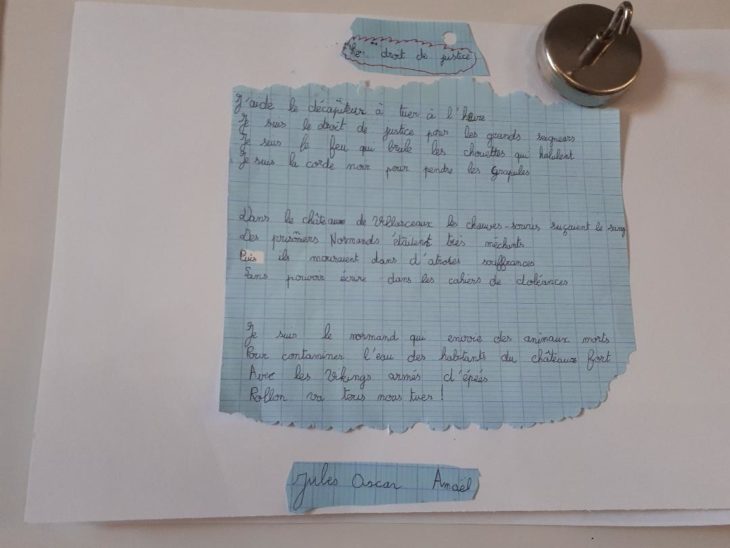 droit de justice
J'aide le décapiteur à tuer à l'heure
Je suis le droit de justice pour les grands seigneurs
Je suis le feu qui brule les chouettes qui hululent
Je suis la corde noir pour pendre les
Dans le château de Villarceaux les chauves-souris suçaient le sang
Les prisoñers Normands étaitent très méchants
Puis ils mouraient dans d'atroces souffrances
Sans pouvoir écrire dans les cahiers de doléances
Je suis le normand qui envoie des animaux morts
Pour contaminer l'eau des habitants du château fort
Avec les Vikings armés d'épées
Rollon va tous nous tuer !
Jules Oscar Amaël